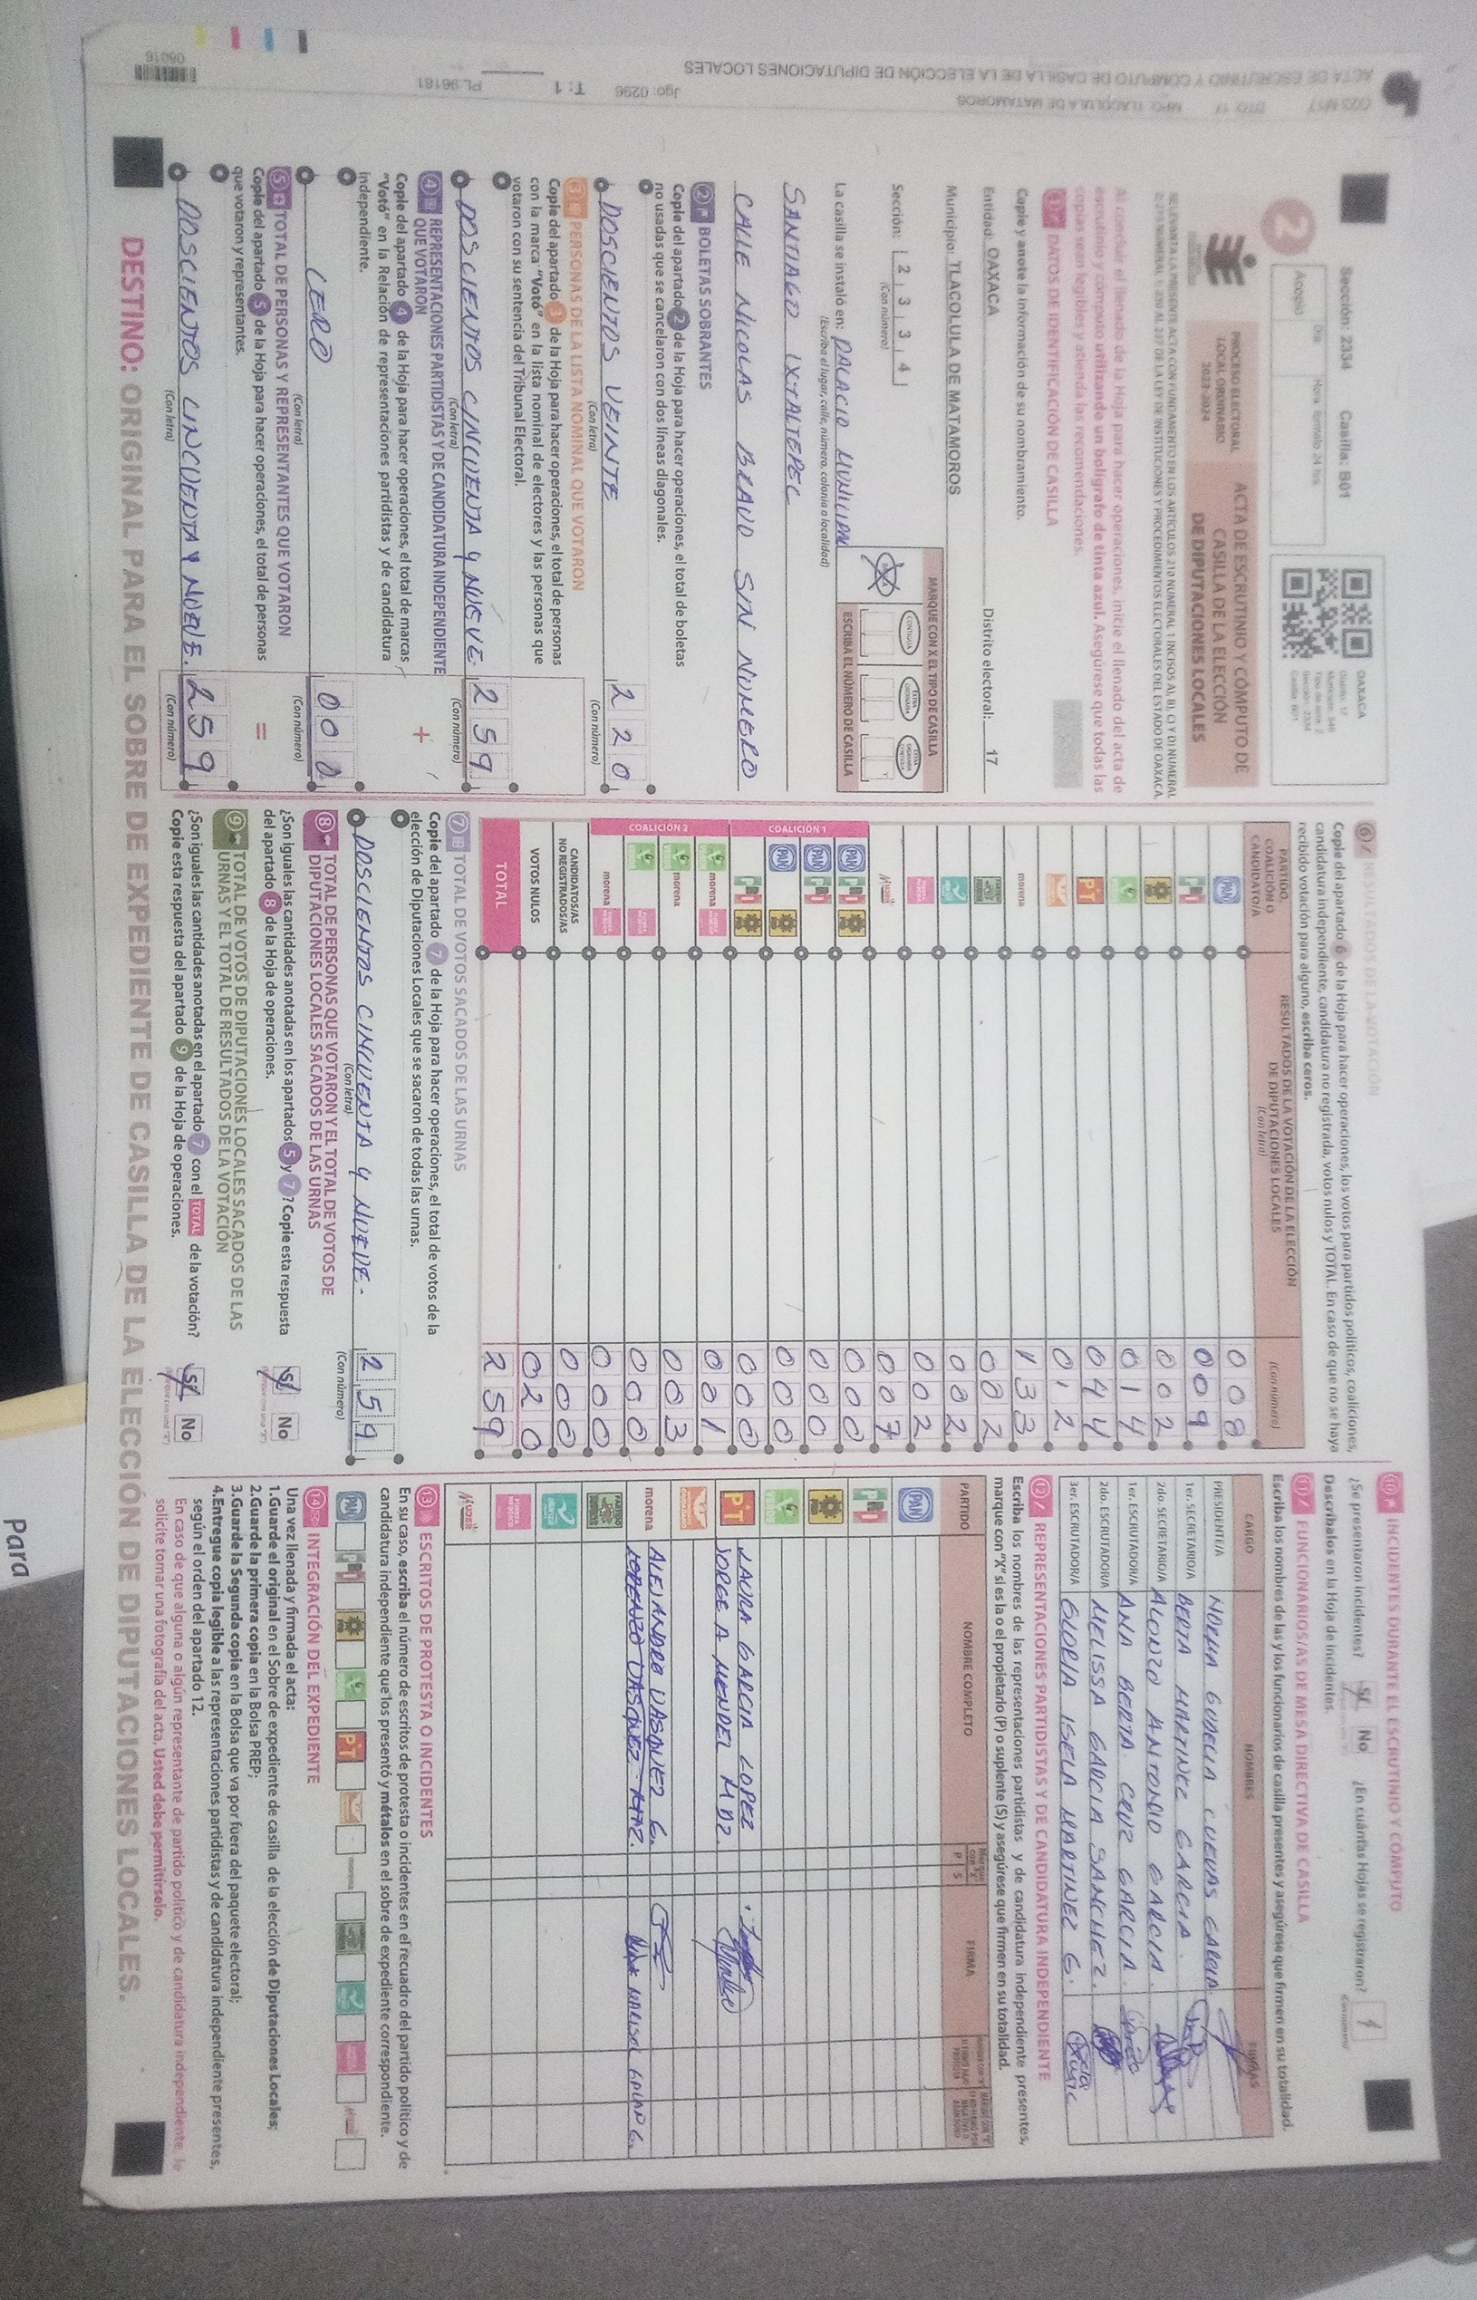 Sección: 2334 Casilla: B01
OAXACA
PROCESO ELECTORAL
LOCAL ORDINARIO
2023-2024
ACTA DE ESCRUTINIO Y CÓMPUTO DE
CASILLA DE LA ELECCIÓN
DE DIPUTACIONES LOCALES
2
Acopio
Día
Hora formato 24 hrs
SE LEVANTA LA PRESENTE ACTA CON FUNDAMENTO EN LOS ARTÍCULOS
Al concluir el llenado de la Hoja para hacer operaciones, inicie el llenado del acta de
escrutinio y cómputo utilizando un bolígrafo de tinta azul. Asegúrese que todas las
copias sean legibles y atienda las recomendaciones.
1 DATOS DE IDENTIFICACIÓN DE CASILLA
Copie y anote la información de su nombramiento.
Entidad: OAXACA Distrito electoral: 17
Municipio: TLACOLULA DE MATAMOROS
Sección: 2 3 3 4
(Con número)
MARQUE CON X EL TIPO DE CASILLA
ESCRIBA EL NÚMERO DE CASILLA
La casilla se instaló en: PALACIO MUNICIPAL
(Escriba el lugar, calle, número, colonia o localidad)
SANTIAGO IXTALTEPEC
CALLE NICOLAS BRAVO SIN NUMERO
2 BOLETAS SOBRANTES
Copie del apartado 2 de la Hoja para hacer operaciones, el total de boletas
no usadas que se cancelaron con dos líneas diagonales.
DOSCIENTOS VEINTE 2 2 0
(Con letra) (Con número)
3 PERSONAS DE LA LISTA NOMINAL QUE VOTARON
Copie del apartado 3 de la Hoja para hacer operaciones, el total de personas
con la marca "Votó" en la lista nominal de electores y las personas que
votaron con su sentencia del Tribunal Electoral.
DOSCIENTOS CINCUENTA Y NUEVE 2 5 9
(Con letra) (Con número)
4 REPRESENTACIONES PARTIDISTAS Y DE CANDIDATURA INDEPENDIENTE
QUE VOTARON
+
Copie del apartado 4 de la Hoja para hacer operaciones, el total de marcas
"Votó" en la Relación de representaciones partidistas y de candidatura
independiente.
CERO 0 0 0
(Con letra) (Con número)
5 TOTAL DE PERSONAS Y REPRESENTANTES QUE VOTARON
=
Copie del apartado 5 de la Hoja para hacer operaciones, el total de personas
que votaron y representantes.
DOSCIENTOS CINCUENTA Y NUEVE. 2 5 9
(Con letra) (Con número)
6 RESULTADOS DE LA VOTACIÓN
Copie del apartado 6 de la Hoja para hacer operaciones, los votos para partidos políticos, coaliciones,
candidatura independiente, candidatura no registrada, votos nulos y TOTAL. En caso de que no se haya
recibido votación para alguno, escriba ceros.
PARTIDO,
COALICIÓN O
CANDIDATO/A
RESULTADOS DE LA VOTACIÓN DE LA ELECCIÓN
DE DIPUTACIONES LOCALES
(Con letra)
(Con número)
PAN 0 0 8
PRI 0 0 9
PRD 0 0 2
VERDE 0 1 4
PT 0 4 4
0 1 2
morena 1 3 3
0 0 2
0 0 2
0 0 2
Mujer 0 0 7
COALICIÓN 1
PAN PRI PRD 0 0 0
PAN PRI 0 0 0
PAN PRD 0 0 0
PRI PRD 0 0 0
COALICIÓN 2
VERDE morena 0 0 1
VERDE morena 0 0 3
VERDE 0 0 0
morena 0 0 0
CANDIDATOS/AS
NO REGISTRADOS/AS 0 0 0
VOTOS NULOS 0 2 0
TOTAL 2 5 9
7 TOTAL DE VOTOS SACADOS DE LAS URNAS
Copie del apartado 7 de la Hoja para hacer operaciones, el total de votos de la
elección de Diputaciones Locales que se sacaron de todas las urnas.
DOSCIENTOS CINCUENTA Y NUEVE. 2 5 9
(Con letra) (Con número)
8 TOTAL DE PERSONAS QUE VOTARON Y EL TOTAL DE VOTOS DE
DIPUTACIONES LOCALES SACADOS DE LAS URNAS
¿Son iguales las cantidades anotadas en los apartados 5 y 7? Copie esta respuesta
del apartado 8 de la Hoja de operaciones.
Sí No
9 TOTAL DE VOTOS DE DIPUTACIONES LOCALES SACADOS DE LAS
URNAS Y EL TOTAL DE RESULTADOS DE LA VOTACIÓN
¿Son iguales las cantidades anotadas en el apartado 7 con el TOTAL de la votación?
Copie esta respuesta del apartado 9 de la Hoja de operaciones.
Sí No
10 INCIDENTES DURANTE EL ESCRUTINIO Y CÓMPUTO
¿Se presentaron incidentes? Sí No ¿En cuántas Hojas se registraron? 1
Descríbalos en la Hoja de incidentes.
11 FUNCIONARIOS/AS DE MESA DIRECTIVA DE CASILLA
Escriba los nombres de las y los funcionarios de casilla presentes y asegúrese que firmen en su totalidad.
CARGO NOMBRES FIRMAS
PRESIDENTE/A NORMA GUDELIA CUEVAS GARCIA
1er. SECRETARIO/A BERTA MARTINEZ GARCIA.
2do. SECRETARIO/A ALONZO ANTONIO GARCIA.
1er. ESCRUTADOR/A ANA BERTA CRUZ GARCIA.
2do. ESCRUTADOR/A MELISSA GARCIA SANCHEZ.
3er. ESCRUTADOR/A GLORIA ISELA MARTINEZ G.
12 REPRESENTACIONES PARTIDISTAS Y DE CANDIDATURA INDEPENDIENTE
Escriba los nombres de las representaciones partidistas y de candidatura independiente presentes,
marque con "X" si es la o el propietario (P) o suplente (S) y asegúrese que firmen en su totalidad.
PARTIDO NOMBRE COMPLETO P S FIRMA
PAN
PRI
PRD
VERDE
PT LAURA GARCIA LOPEZ
JORGE A MENDEZ MDZ.
morena ALEJANDRO VASQUEZ G.
LORENZO VASQUEZ MTZ.
Mujer
13 ESCRITOS DE PROTESTA O INCIDENTES
En su caso, escriba el número de escritos de protesta o incidentes en el recuadro del partido político y de
candidatura independiente que los presentó y métalos en el sobre de expediente correspondiente.
PAN PRI PRD VERDE PT morena
14 INTEGRACIÓN DEL EXPEDIENTE
Una vez llenada y firmada el acta:
1.Guarde el original en el Sobre de expediente de casilla de la elección de Diputaciones Locales;
2.Guarde la primera copia en la Bolsa PREP;
3.Guarde la Segunda copia en la Bolsa que va por fuera del paquete electoral;
4.Entregue copia legible a las representaciones partidistas y de candidatura independiente presentes,
según el orden del apartado 12.
En caso de que alguna o algún representante de partido político y de candidatura independiente, le
solicite tomar una fotografía del acta, Usted debe permitírselo.
DESTINO: ORIGINAL PARA EL SOBRE DE EXPEDIENTE DE CASILLA DE LA ELECCIÓN DE DIPUTACIONES LOCALES.
ACTA DE ESCRUTINIO Y COMPUTO DE CASILLA DE LA ELECCIÓN DE DIPUTACIONES LOCALES
DTO 17 MPO. TLACOLULA DE MATAMOROS
Jgo: 0296 T: 1 PL.96181
06016
Para